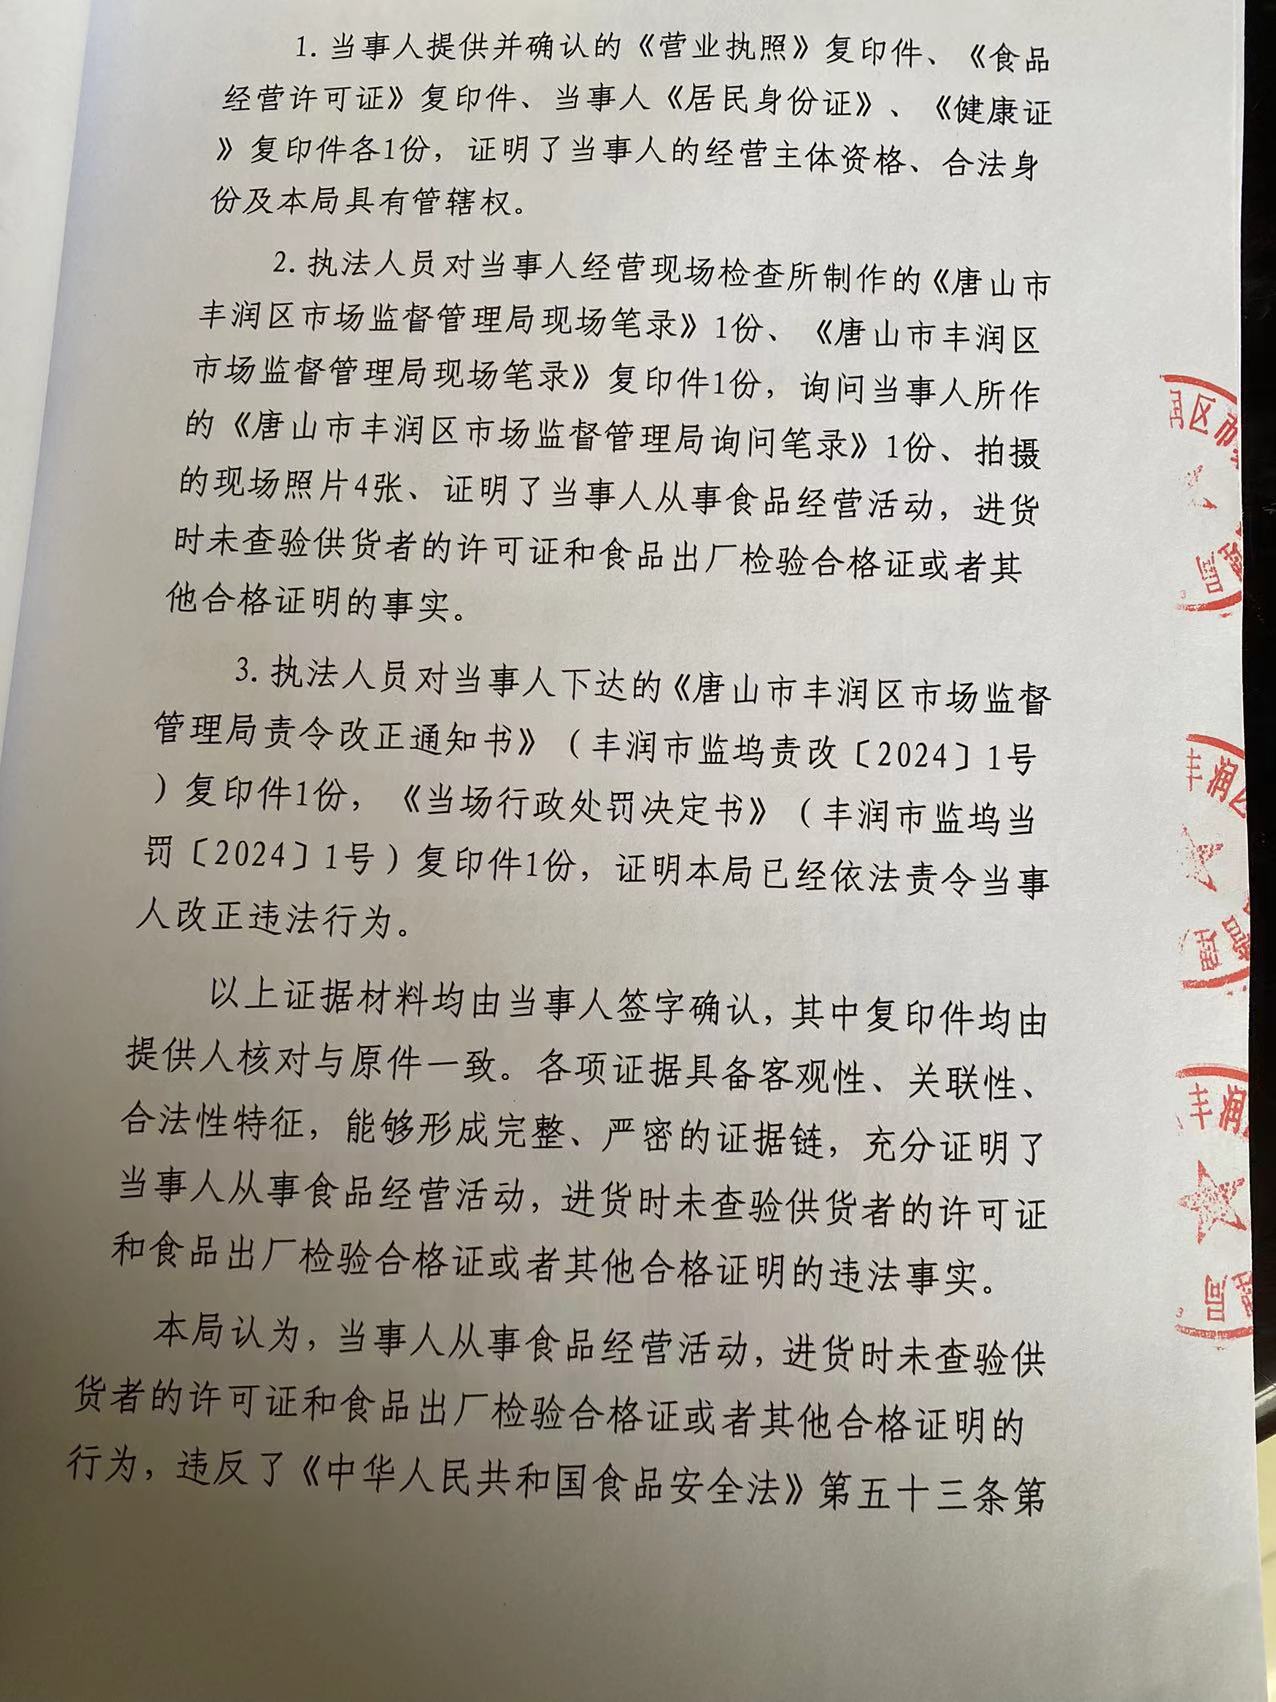 1. 当事人提供并确认的《营业执照》复印件、《食品
经营许可证》复印件、当事人《居民身份证》、《健康证
》复印件各1份，证明了当事人的经营主体资格、合法身
份及本局具有管辖权。
2. 执法人员对当事人经营现场检查所制作的《唐山市
丰润区市场监督管理局现场笔录》1份、《唐山市丰润区
市场监督管理局现场笔录》复印件1份，询问当事人所作
的《唐山市丰润区市场监督管理局询问笔录》1份、拍摄
的现场照片4张、证明了当事人从事食品经营活动，进货
时未查验供货者的许可证和食品出厂检验合格证或者其
他合格证明的事实。
3. 执法人员对当事人下达的《唐山市丰润区市场监督
管理局责令改正通知书》（丰润市监坞责改〔2024〕1号
）复印件1份，《当场行政处罚决定书》（丰润市监坞当
罚〔2024〕1号）复印件1份，证明本局已经依法责令当事
人改正违法行为。
以上证据材料均由当事人签字确认，其中复印件均由
提供人核对与原件一致。各项证据具备客观性、关联性、
合法性特征，能够形成完整、严密的证据链，充分证明了
当事人从事食品经营活动，进货时未查验供货者的许可证
和食品出厂检验合格证或者其他合格证明的违法事实。
本局认为，当事人从事食品经营活动，进货时未查验供
货者的许可证和食品出厂检验合格证或者其他合格证明的
行为，违反了《中华人民共和国食品安全法》第五十三条第
区市
丰润区
丰润